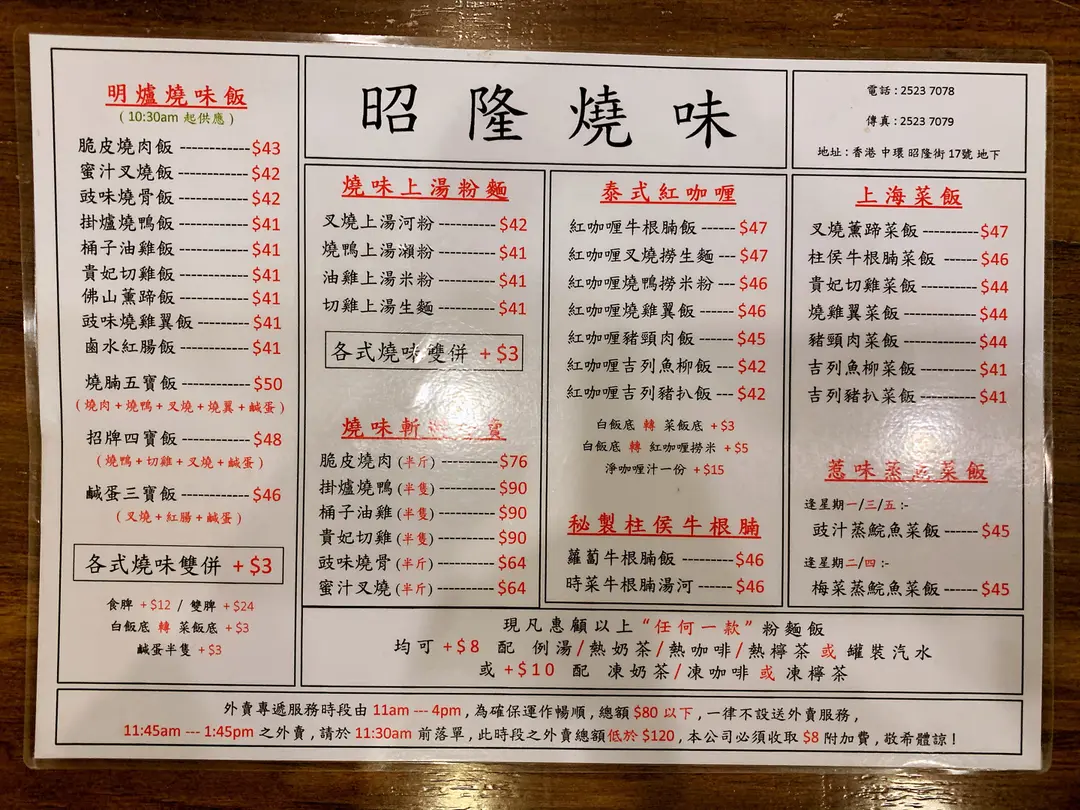 明爐燒味飯
( 10:30am 起供應 )
脆皮燒肉飯 ------------ $43
蜜汁叉燒飯 ------------ $42
豉味燒骨飯 ------------ $42
掛爐燒鴨飯 ------------ $41
桶子油雞飯 ------------ $41
貴妃切雞飯 ------------ $41
佛山薰蹄飯 ------------ $41
豉味燒雞翼飯 --------- $41
鹵水紅腸飯 ------------ $41
燒腩五寶飯 ------------ $50
( 燒肉 + 燒鴨 + 叉燒 + 燒翼 + 鹹蛋 )
招牌四寶飯 ------------ $48
( 燒鴨 + 切雞 + 叉燒 + 鹹蛋 )
鹹蛋三寶飯 ------------ $46
( 叉燒 + 紅腸 + 鹹蛋 )
各式燒味雙併 + $3
食脾 + $12 / 雙脾 + $24
白飯底 轉 菜飯底 + $3
鹹蛋半隻 + $3
昭隆燒味
電話 : 2523 7078
傳真 : 2523 7079
地址 : 香港 中環 昭隆街 17號 地下
燒味上湯粉麵
叉燒上湯河粉 ----------- $42
燒鴨上湯瀨粉 ----------- $41
油雞上湯米粉 ----------- $41
切雞上湯生麵 ----------- $41
各式燒味雙併 + $3
燒味斬
脆皮燒肉 (半斤) ---------- $76
掛爐燒鴨 (半隻) ---------- $90
桶子油雞 (半隻) ---------- $90
貴妃切雞 (半隻) ---------- $90
豉味燒骨 (半斤) ---------- $64
蜜汁叉燒 (半斤) ---------- $64
泰式紅咖喱
紅咖喱牛根腩飯 ------ $47
紅咖喱叉燒撈生麵 --- $47
紅咖喱燒鴨撈米粉 --- $46
紅咖喱燒雞翼飯 ------ $46
紅咖喱豬頸肉飯 ------ $45
紅咖喱吉列魚柳飯 --- $42
紅咖喱吉列豬扒飯 --- $42
白飯底 轉 菜飯底 + $3
白飯底 轉 紅咖喱撈米 + $5
淨咖喱汁一份 + $15
秘製柱侯牛根腩
蘿蔔牛根腩飯 --------- $46
時菜牛根腩湯河 ------- $46
上海菜飯
叉燒薰蹄菜飯 ---------- $47
柱侯牛根腩菜飯 ------ $46
貴妃切雞菜飯 ---------- $44
燒雞翼菜飯 ------------- $44
豬頸肉菜飯 ------------- $44
吉列魚柳菜飯 ---------- $41
吉列豬扒菜飯 ---------- $41
惹味蒸魚菜飯
逢星期一/三/五 :-
豉汁蒸鯇魚菜飯 ------ $45
逢星期二/四 :-
梅菜蒸鯇魚菜飯 ------ $45
現凡惠顧以上 “任何一款” 粉麵飯
均可 +$8 配 例湯/熱奶茶/熱咖啡/熱檸茶 或 罐裝汽水
或 +$10 配 凍奶茶/凍咖啡 或 凍檸茶
外賣專遞服務時段由 11am --- 4pm , 為確保運作暢順 , 總額 $80 以下 , 一律不設送外賣服務 ,
11:45am --- 1:45pm 之外賣 , 請於 11:30am 前落單 , 此時段之外賣總額低於 $120 , 本公司必須收取 $8 附加費 , 敬希體諒 !